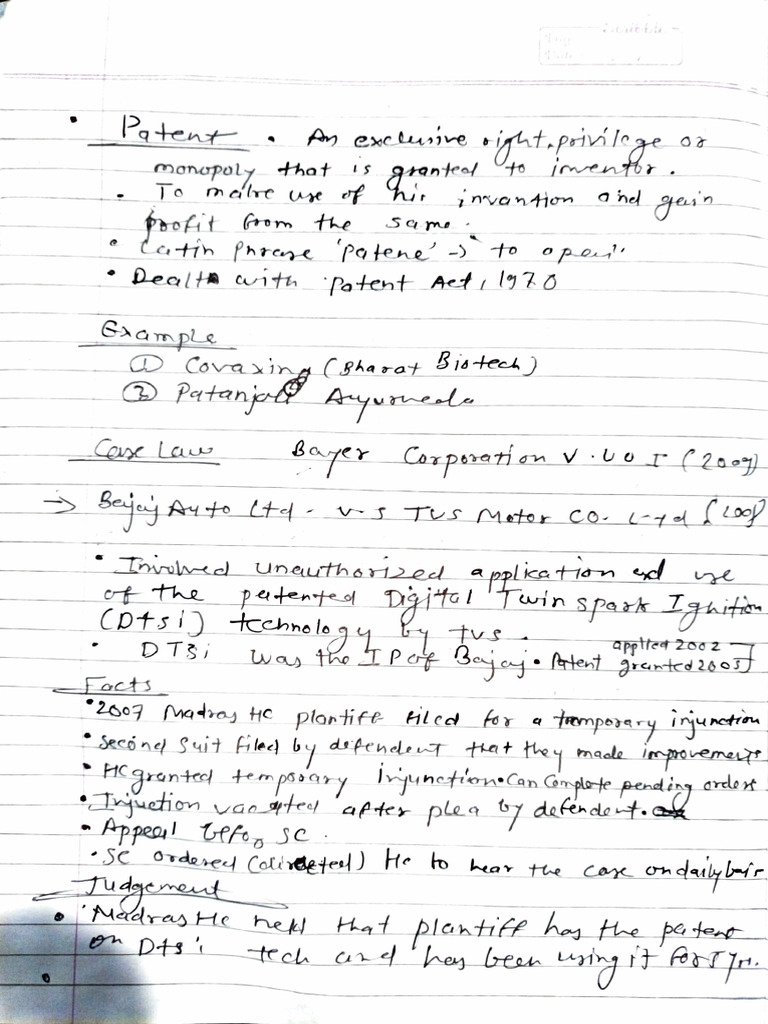 • Patent • An exclusive right, privilege or
monopoly that is granted to inventor.
• To make use of his invantion and gain
profit from the same.
• Latin phrase 'patene' -> "to open"
• Dealt with patent Act, 1970
Example
① Covaxing (Bharat Biotech)
② Patanjali Ayurveda
Case Law Bayer Corporation V. UOI (2009)
-> Bajaj Auto Ltd. v-s TVS Motor CO. Ltd
• Involved unauthorized application and use
of the patented Digital Twin spark Ignition
(DTsi) technology by tvs.
• DTSi was the IP of Bajaj • Patent applied 2002
granted 2005]
Facts
• 2007 Madras HC plantiff filed for a temporary injunction
• Second Suit filed by defendent that they made improvements
• HC granted temporary injunction • Can Complete pending orders
• Injuction vacated after plea by defendent.
• Appeal SC.
• SC ordered (directed) Hc to hear the case on daily
Judgement
• Madras Hc held that plantiff has the patent
on Dtsi tech and has been using it for 5 yr.
•